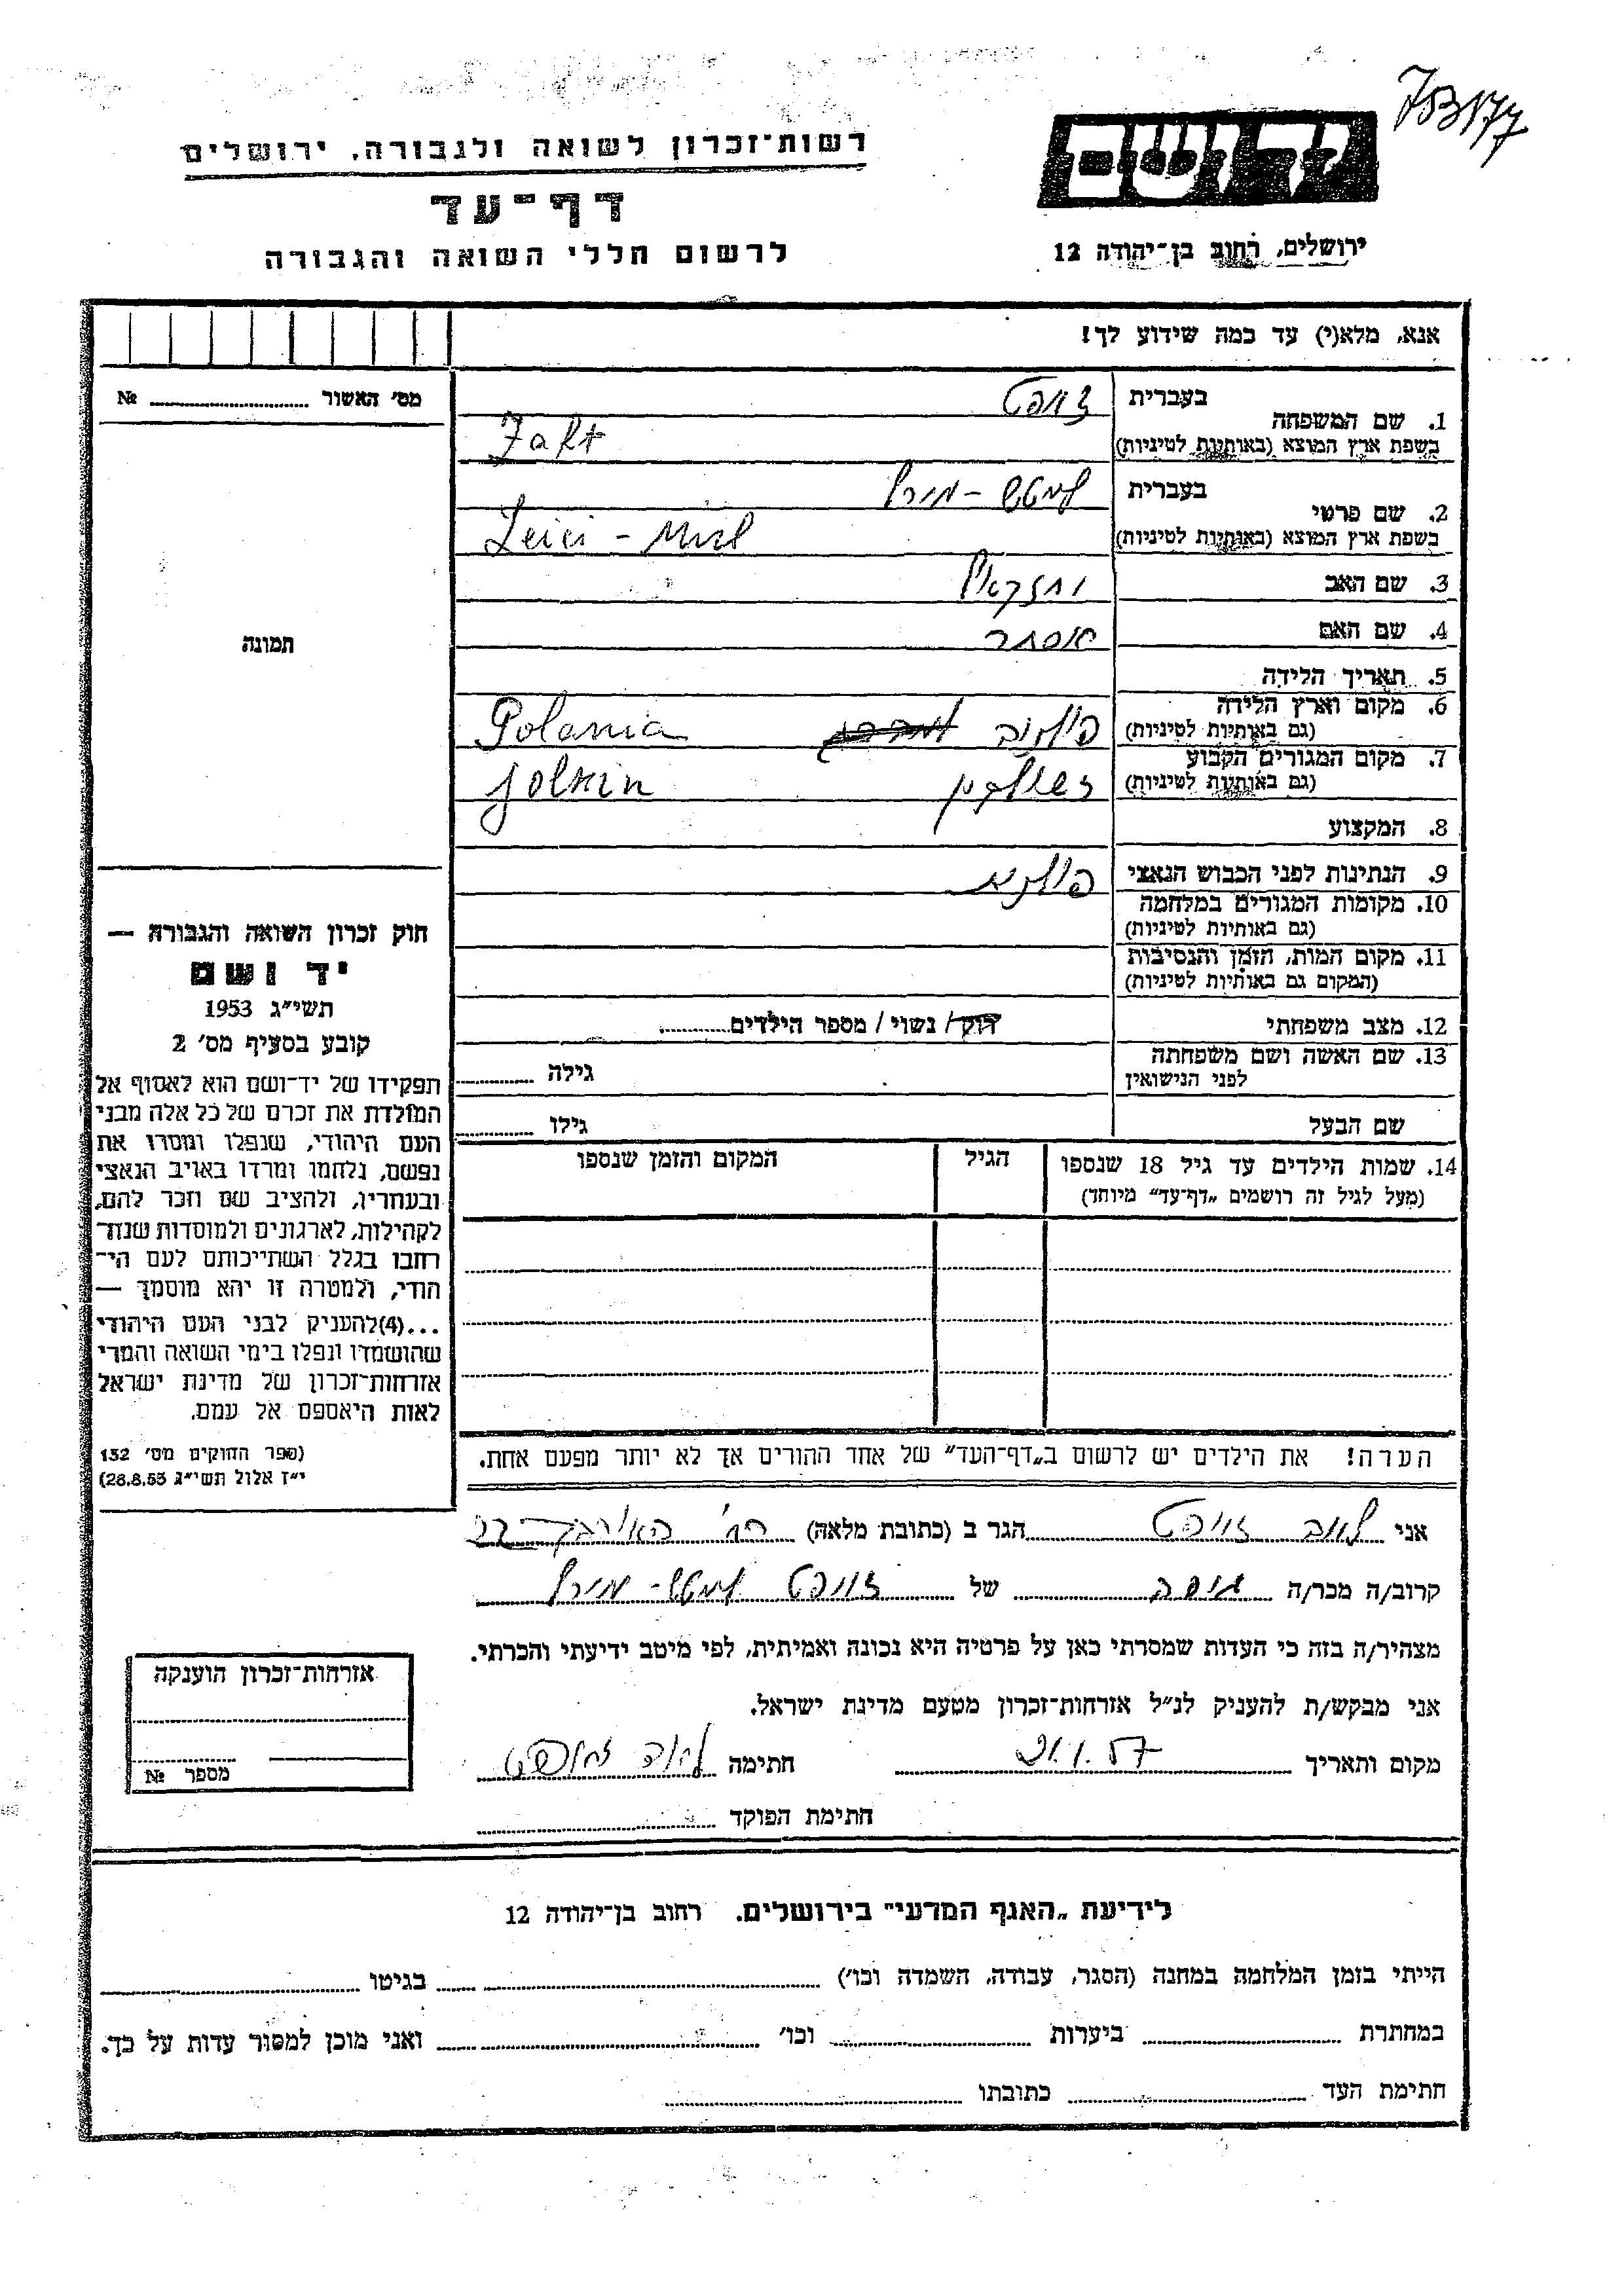 רשות־זכרון לשואה ולגבורה, ירושלים
דף־עד
לרשום חללי השואה והגבורה
יד ושם
ירושלים, רחוב בן־יהודה 12
אנא, מלא(י) עד כמה שידוע לך!
מס׳ האשור № 
תמונה
1. שם המשפחה בעברית
בשפת ארץ המוצא (באותיות לטיניות) Zaft
2. שם פרטי בעברית
בשפת ארץ המוצא (באותיות לטיניות)
3. שם האב יחזקאל
4. שם האם אסתר
5. תאריך הלידה
6. מקום וארץ הלידה
(גם באותיות לטיניות) פולניה Polania
7. מקום המגורים הקבוע
(גם באותיות לטיניות)
8. המקצוע
9. הנתינות לפני הכבוש הנאצי
10. מקומות המגורים במלחמה
(גם באותיות לטיניות)
11. מקום המות, הזמן והנסיבות
(המקום גם באותיות לטיניות)
12. מצב משפחתי רווק / נשוי / מספר הילדים
13. שם האשה ושם משפחתה
לפני הנישואין גילה
שם הבעל גילו
14. שמות הילדים עד גיל 18 שנספו הגיל המקום והזמן שנספו
(מעל לגיל זה רושמים „דף־עד״ מיוחד)
הערה! את הילדים יש לרשום ב„דף־העד״ של אחד ההורים אך לא יותר מפעם אחת.
חוק זכרון השואה והגבורה —
יד ושם
תשי״ג 1953
קובע בסעיף מס׳ 2
תפקידו של יד־ושם הוא לאסוף אל
המולדת את זכרם של כל אלה מבני
העם היהודי, שנפלו ומסרו את
נפשם, נלחמו ומרדו באויב הנאצי
ובעוזריו, ולהציב שם וזכר להם,
לקהילות, לארגונים ולמוסדות שנח־
רחבו בגלל השתייכותם לעם הי־
הודי, ולמטרה זו יהא מוסמך —
...(4) להעניק לבני העם היהודי
שהושמדו ונפלו בימי השואה והמרי
אזרחות־זכרון של מדינת ישראל
לאות היאספם אל עמם.
(ספר החוקים מס׳ 132
י״ז אלול תשי״ג 28.8.53)
אני הגר ב (כתובת מלאה)
קרוב/ה מכר/ה של
מצהיר/ה בזה כי העדות שמסרתי כאן על פרטיה היא נכונה ואמיתית, לפי מיטב ידיעתי והכרתי.
אני מבקש/ת להעניק לנ״ל אזרחות־זכרון מטעם מדינת ישראל.
מקום ותאריך חתימה
חתימת הפוקד
אזרחות־זכרון הוענקה
מספר №
לידיעת „האגף המדעי״ בירושלים. רחוב בן־יהודה 12
הייתי בזמן המלחמה במחנה (הסגר, עבודה, השמדה וכו׳) בגיטו
במחתרת ביערות וכו׳ ואני מוכן למסור עדות על כך.
חתימת העד כתובתו